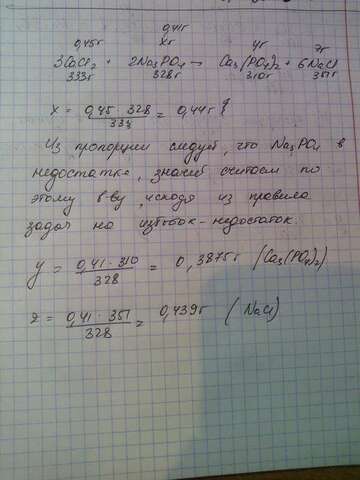 0,41г
0,45г xг yг zг
3CaCl2 + 2Na3PO4 → Ca3(PO4)2 + 6NaCl
333г 328г 310г 351г
x = 0,45 · 328 / 333 = 0,44г
Из пропорции следует, что Na3PO4 в
недостатке, значит считаем по
этому в-ву, исходя из правила
задач на избыток-недостаток.
y = 0,41 · 310 / 328 = 0,3875г (Ca3(PO4)2)
z = 0,41 · 351 / 328 = 0,439г (NaCl)